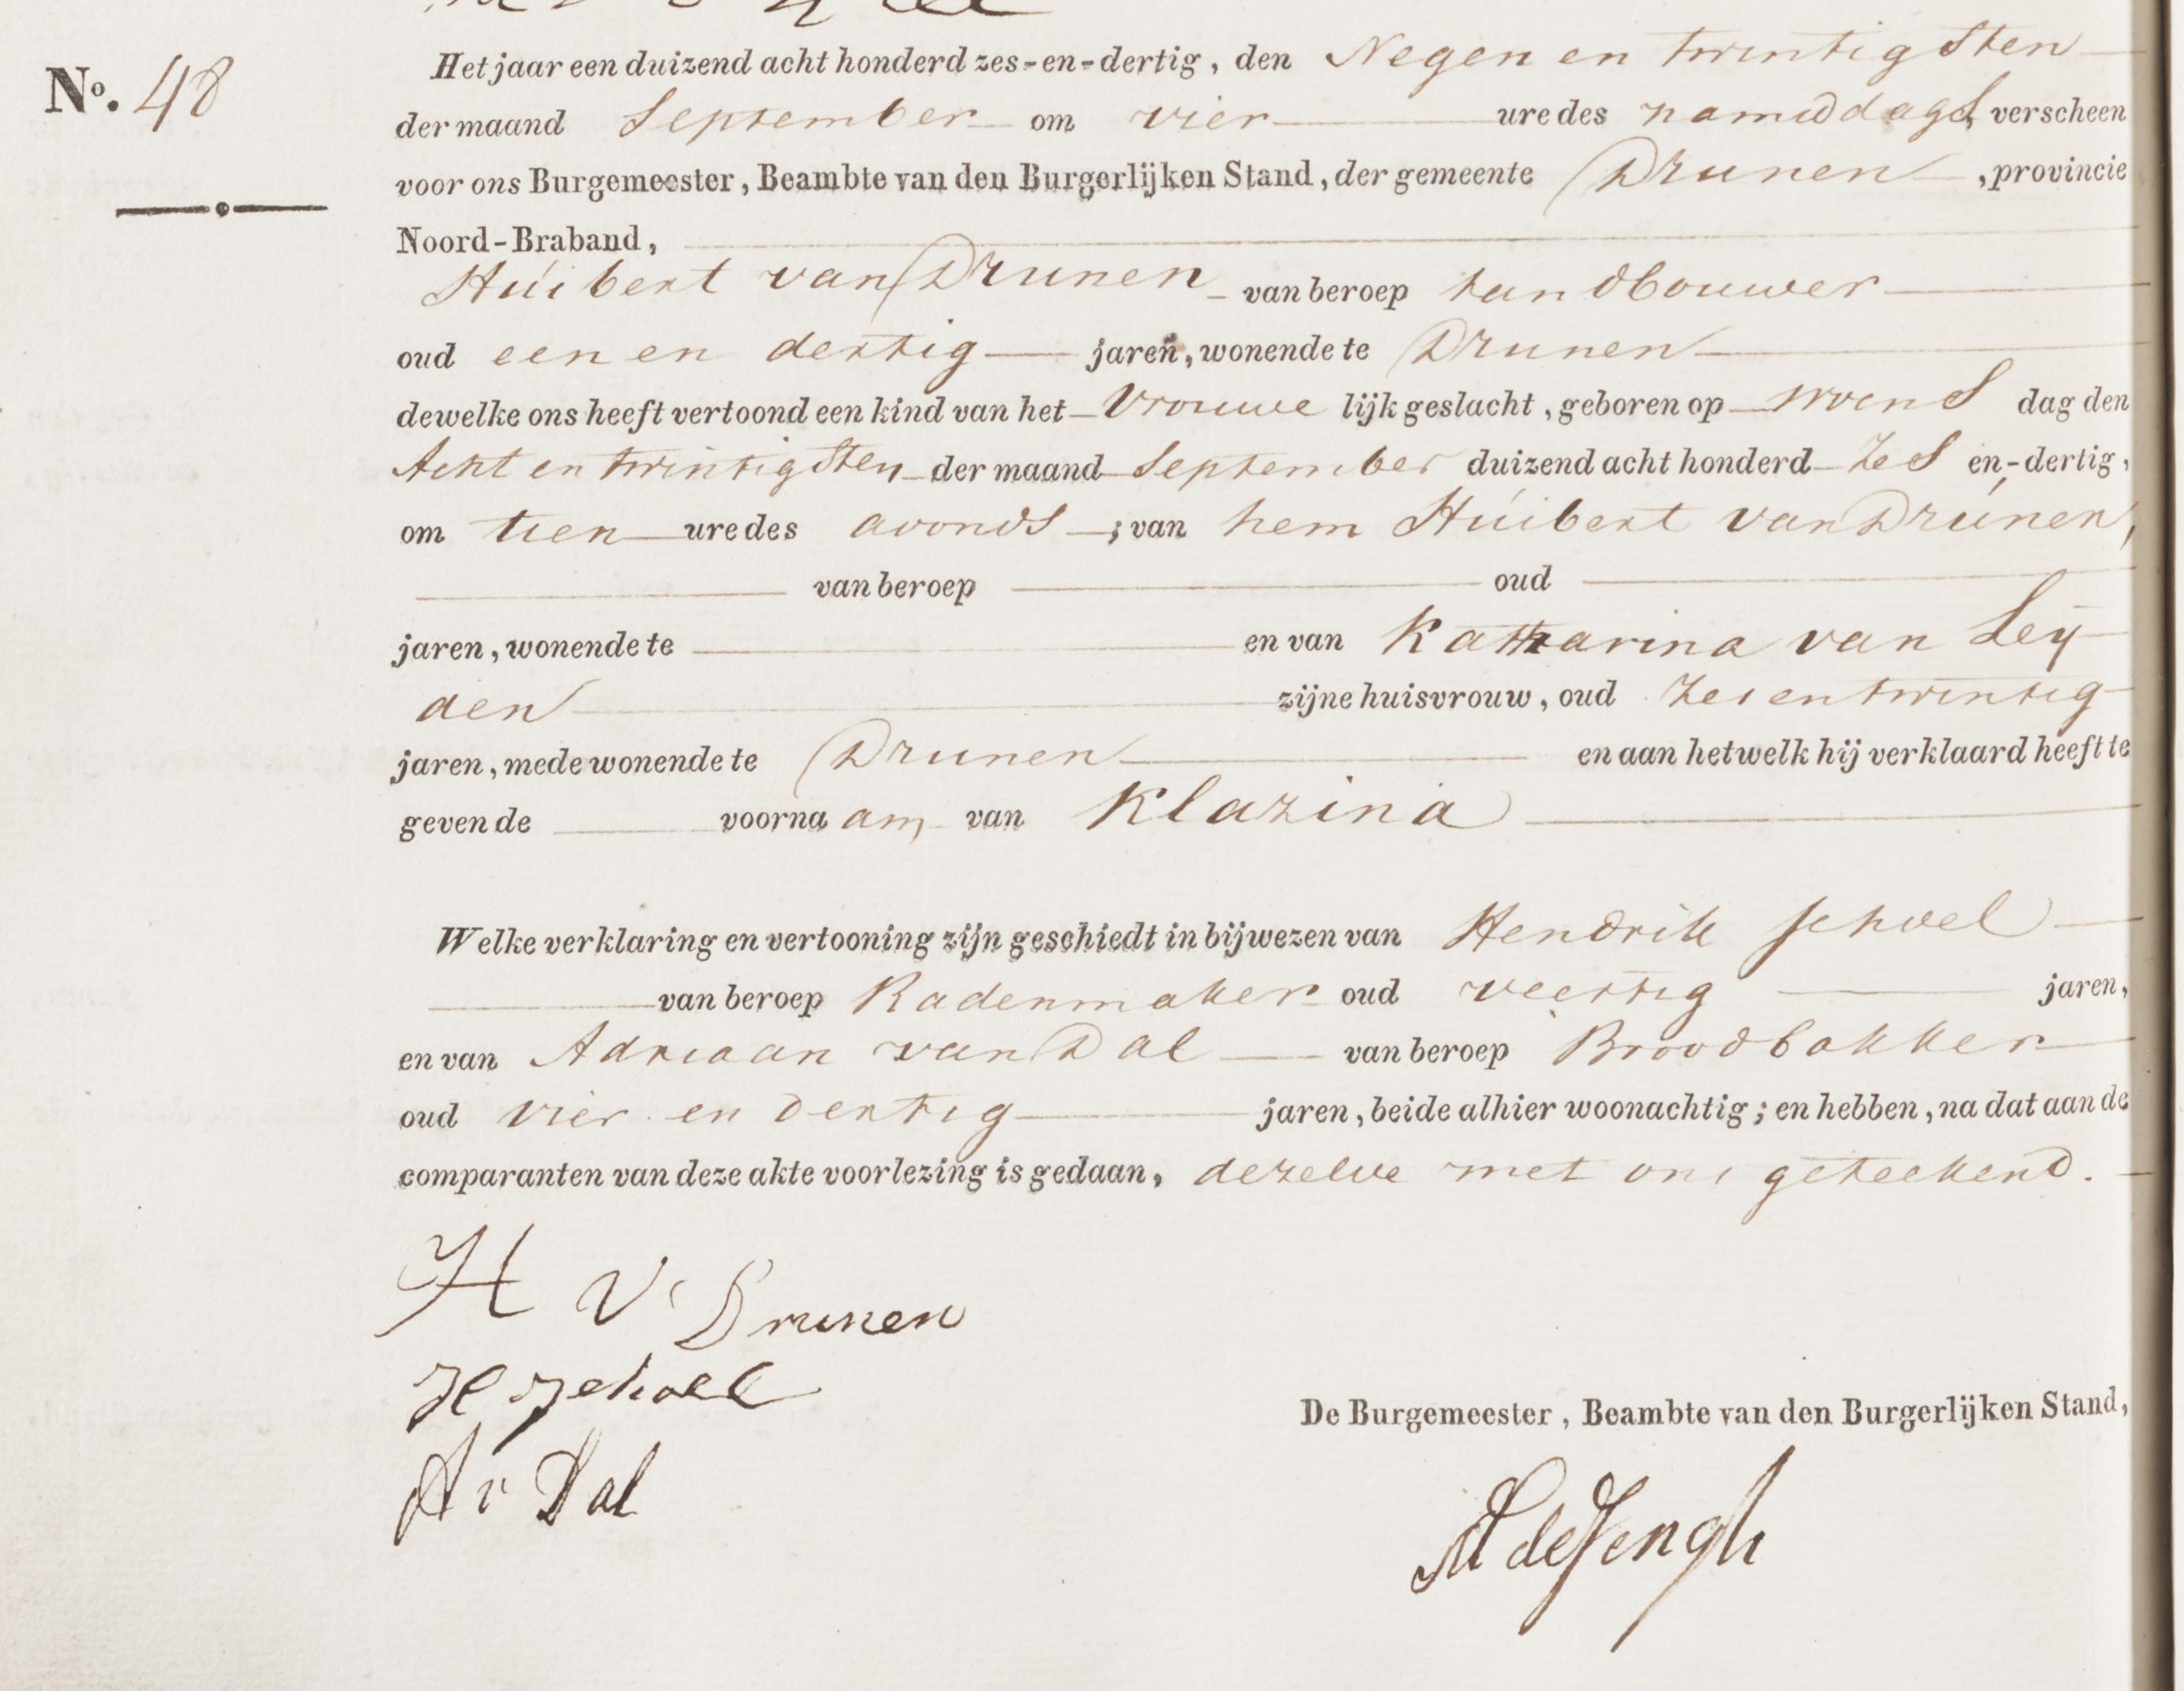 No. 48
Het jaar een duizend acht honderd zes-en-dertig, den Negen en twintigsten
der maand September om vier ure des namiddags, verscheen
voor ons Burgemeester, Beambte van den Burgerlijken Stand, der gemeente Drunen, provincie
Noord-Braband,
Huibert van Drunen van beroep Landbouwer
oud een en dertig jaren, wonende te Drunen
dewelke ons heeft vertoond een kind van het Vrouwe lijk geslacht, geboren op woens dag den
Acht en twintigsten der maand September duizend acht honderd Zes en-dertig,
om tien ure des avonds ; van hem Huibert van Drunen,
van beroep oud
jaren, wonende te en van Katharina van Ley
den zijne huisvrouw, oud Zes en twintig
jaren, mede wonende te Drunen en aan hetwelk hij verklaard heeft te
geven de voorna am van Klazina
Welke verklaring en vertooning zijn geschiedt in bijwezen van Hendrik Schoel
van beroep Radenmaker oud veertig jaren,
en van Adriaan van Dal van beroep Broodbakker
oud vier en dertig jaren, beide alhier woonachtig; en hebben, na dat aan de
comparanten van deze akte voorlezing is gedaan, dezelve met ons geteekend.
H V Drunen
H Schoel
De Burgemeester, Beambte van den Burgerlijken Stand,
A v Dal